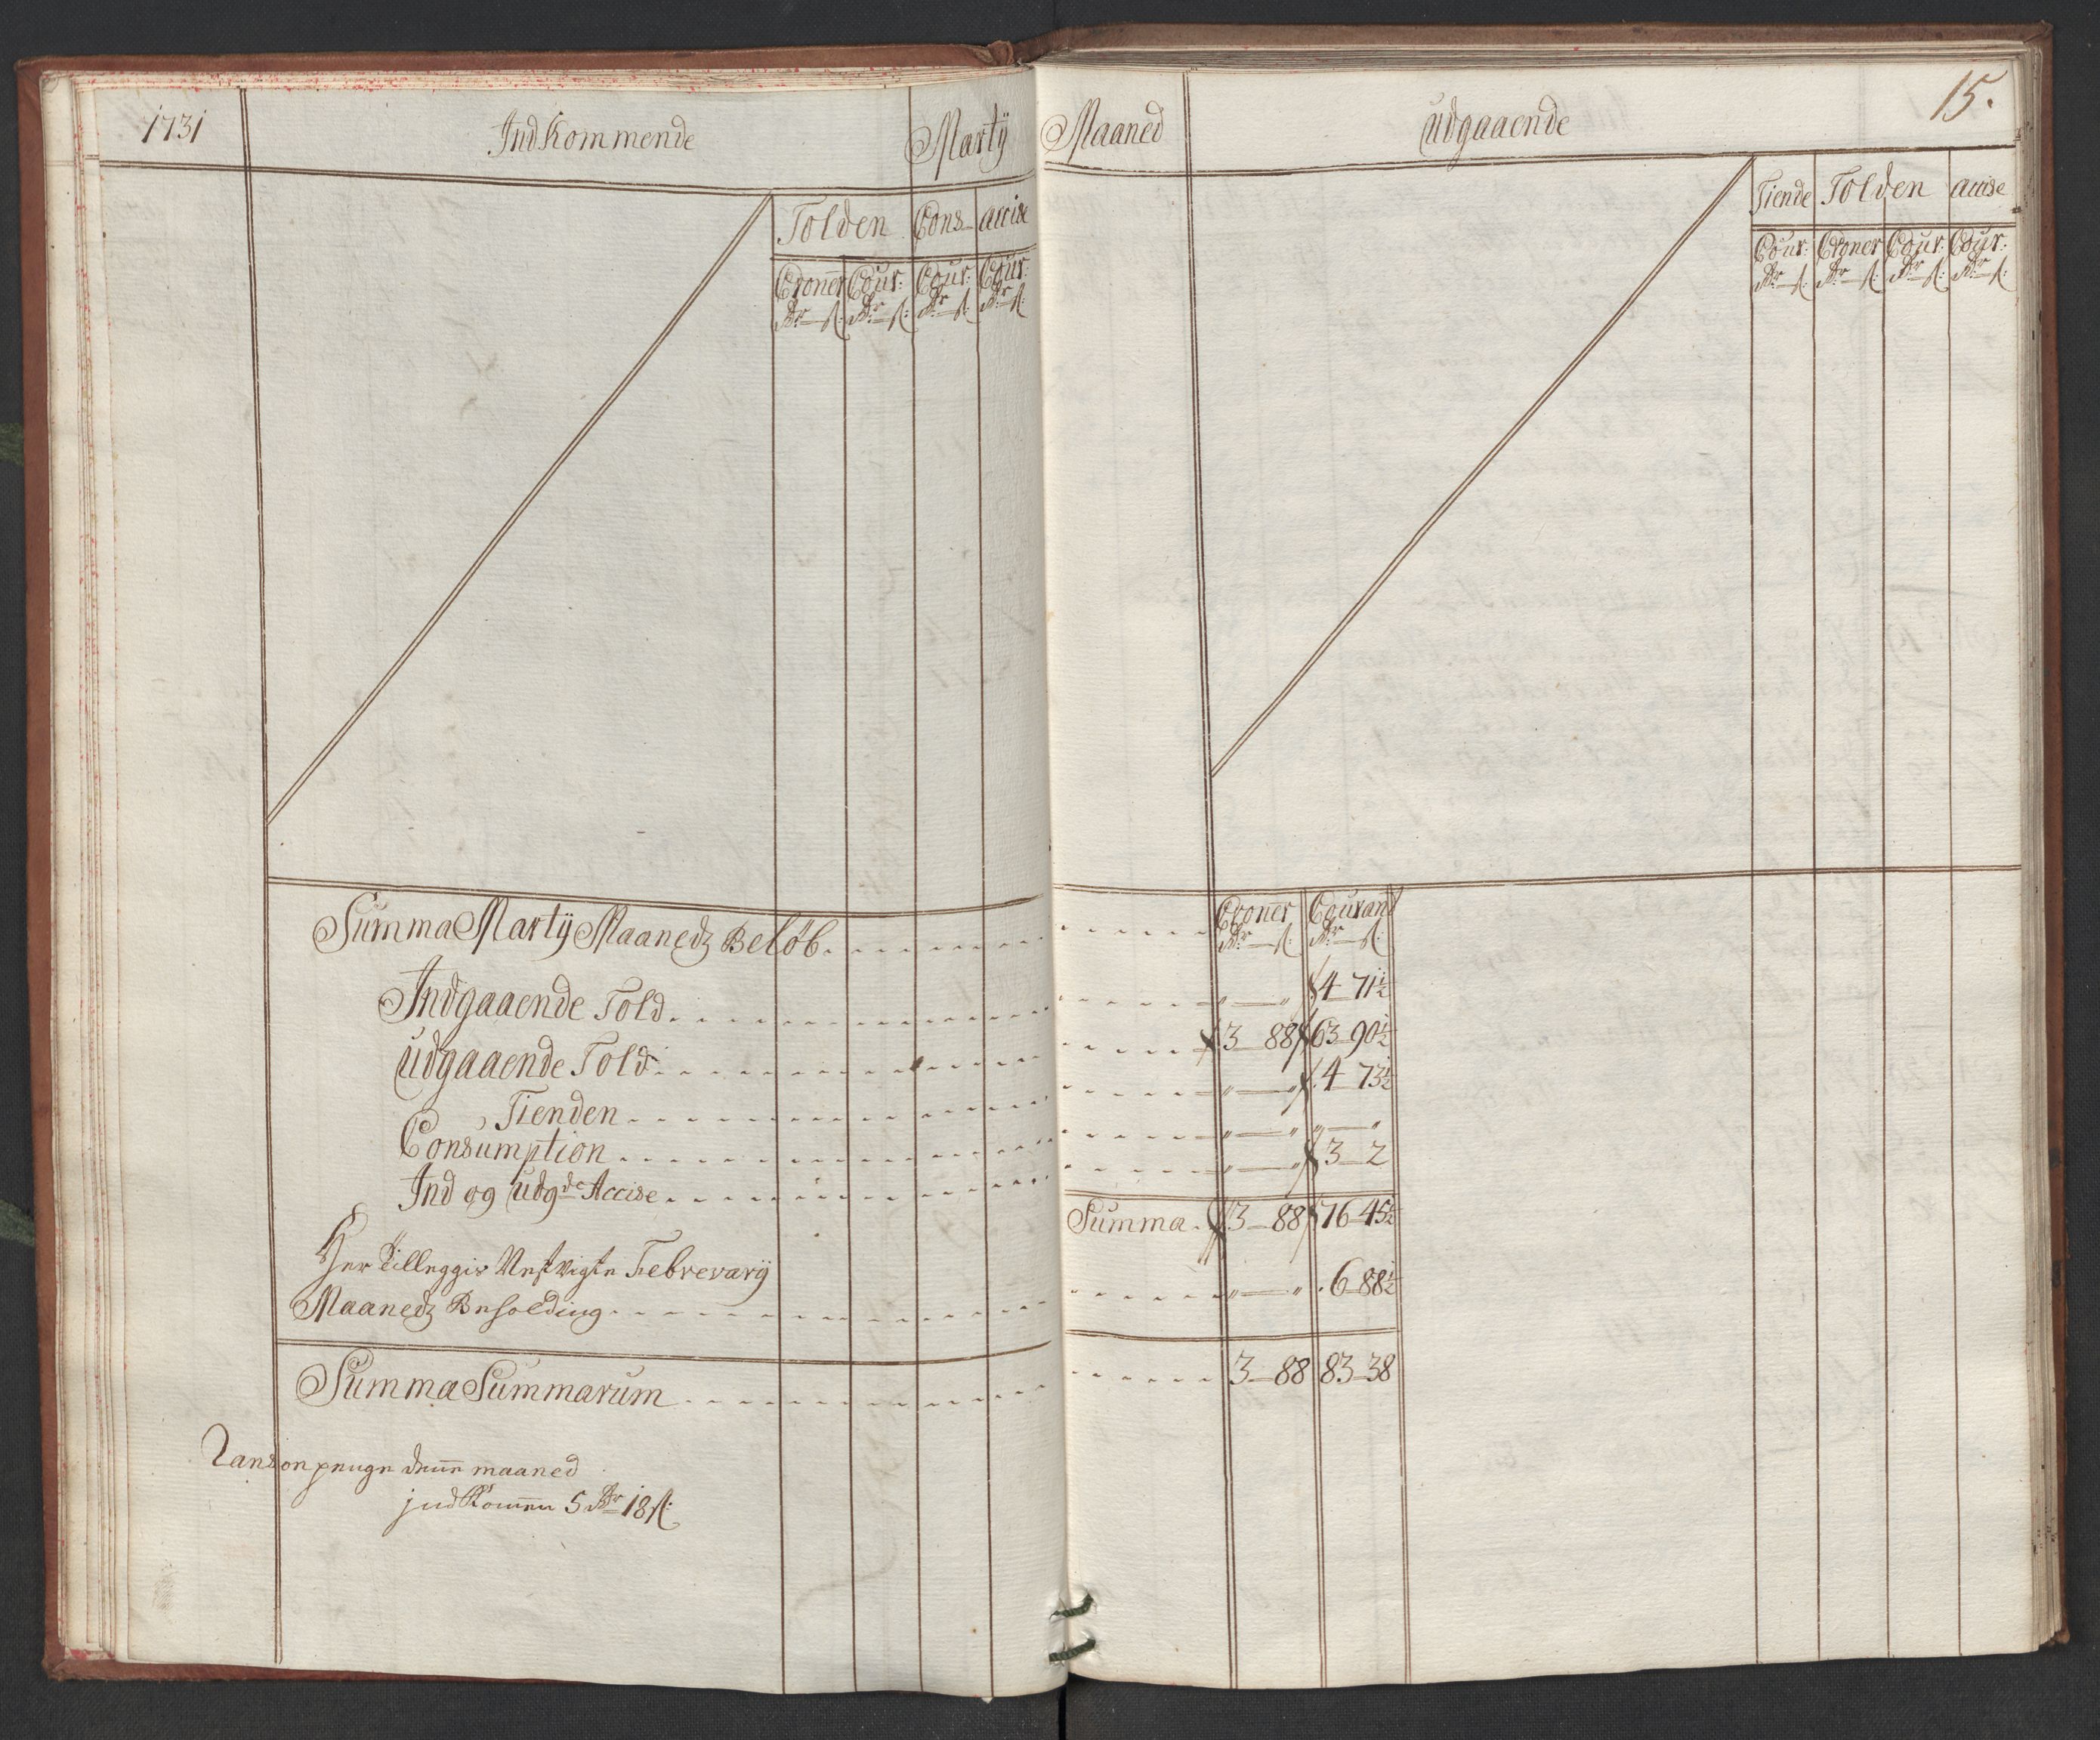 1731 Indkommende Martÿ Maaned udgaaende 15.
Tolden Cons accise
Croner Cour: Cour: Cour:
Rdr ß: Rdr ß: Rdr ß: Rdr ß:
Tiende Tolden accise
Cour: Croner Cour: Cour:
Rdr ß: Rdr ß: Rdr ß: Rdr ß:
Croner Courant
Rdr ß: Rdr ß:
Summa Martÿ Maanedz Beløb
Indgaaende Told 4 71½
udgaaende Told 3 88 63 90½
Tienden 4 73½
Consumption
Ind og udgde Accise 3 2
Summa 3 88 76 45½
Her Tilleggis Febrevarÿ
Maanedz Beholding 6 88½
Summa Summarum 3 88 83 38
penge denne maaned
indkommen 5 Rdr 18 ß: